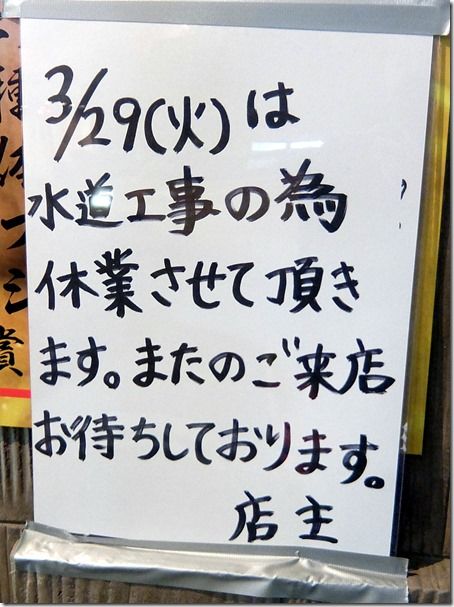 3/29(火)は
水道工事の為
休業させて頂き
ます。またのご来店
お待ちしております。
店主
賞